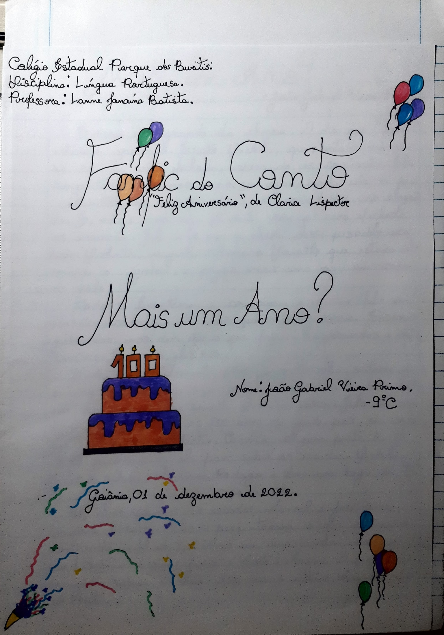 Colégio Estadual Parque dos Buritis.
Disciplina: Língua Portuguesa.
Professora: Lanne Janaína Batista.
Fanfic do Conto
"Feliz Aniversário", de Clarice Lispector
Mais um Ano?
100
Nome: João Gabriel Vieira Primo.
-9°C
Goiânia, 01 de dezembro de 2022.